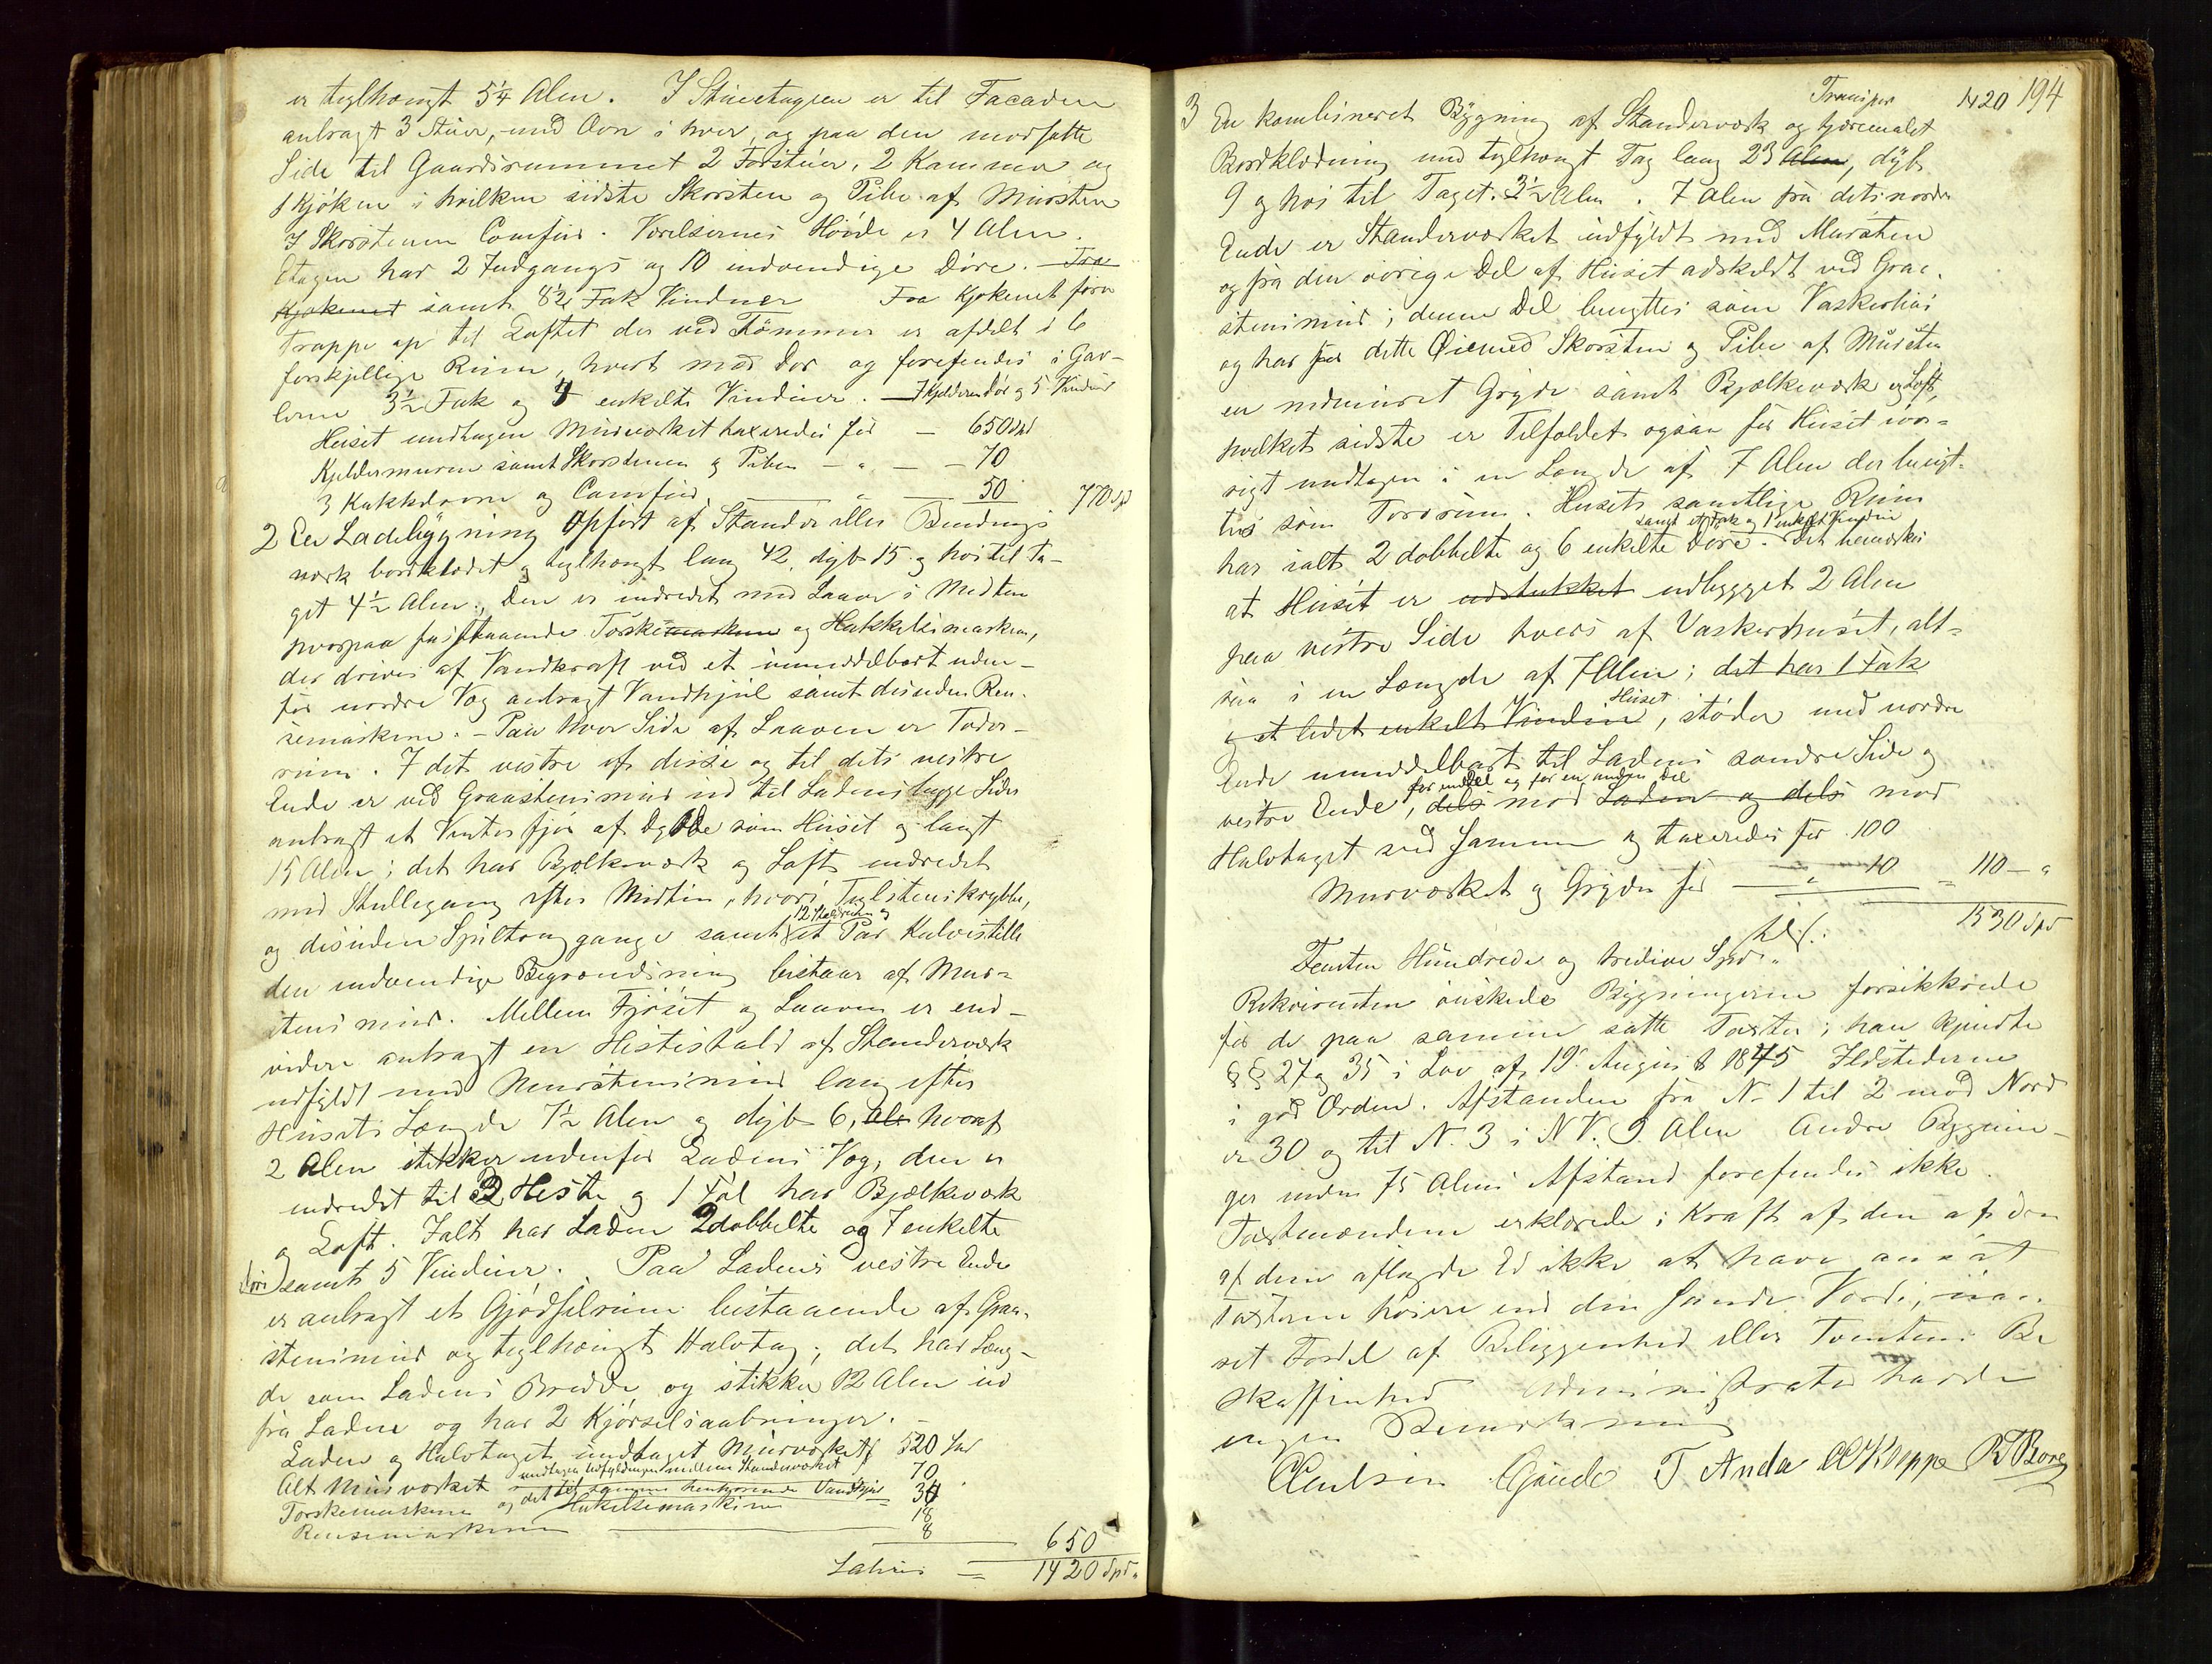 er teglhængt 5¼ Alen. I Stueetagen er til Facaden
anbragt 3 Stuer, med Ovn i hver, og paa den modsatte
Side til Gaardsrummet 2 Forstuer, 2 Kammer og
1 Kjøken i hvilken sidste Skorsten og Pibe af Mursten
I Skorstenen Comfur. Værelsernes Høide er 4 Alen.
Etagen har 2 Indgangs og 10 indvendige Døre. Fra
Kjøkenet samt 8½ Fak Vinduer Fra Kjøkenet fører
Trappe op til Loftet der ved Tømmer er afdelt i 6
forskjellige Rum, hvert med Dør og forefindes i Gav-
lerne 3½ Fak og 4 enkelte Vinduer. I Kjelderen Dør og 5 Vinduer
Huset undtagen Murværket taxeredes for — 650 Spd
Kjeldermuren samt Skorstenen og Piben — " — 70
3 Kakkelovne og Comfur — " — 50 770 Sp
2 En Ladebygning opført af Stander eller Bindings
værk bordklædet og teglhængt lang 42, dyb 15 og høi til Ta-
get 4½ Alen; Den er indredet med Laave i Midten
hvorpaa faststaaende Tærskemaskine og Hakkelsemaskine,
der drives af Vandkraft ved et immiddelbart uden-
for nordre Væg anbragt Vandhjul samt desuden Ren-
semaskine. — Paa hver Side af Laaven er Foder-
rum. I det vestre af disse og til dets vestre
Ende er ved Graastensmur ind til Ladens begge Sider
anbragt et Vinterfjøs af Dybde som Huset og langt
15 Alen; det har Bjelkeværk og Loft indredet
med Stellegang efter Midten, hvori Teglstenskrybbe,
12 Staldrum og
og desuden Spiltougange samt et Par Kalvestille
den indvendige Begrændsning bestaar af Mur-
stensmur. Mellem Fjøset og Laaven er end-
videre anbragt en Hestestald af Standerværk
udfyldt med Murstensmur lang efter
Husets Længde 7½ Alen og dyb 6, Ale hvoraf
2 Alen stikker udenfor Ladens Væg, den er
indredet til 3 Heste og 1 Føl har Bjelkeværk
og Loft. Ialt har Laden 2 dobbelte og 7 enkelte
Døre samt 5 Vinduer. Paa Ladens vestre Ende
er anbragt et Gjødselrum bestaaende af Graa-
stensmur og teglhængt Halvtag; det har Læng-
de som Ladens Bredde og stikker 12 Alen ud
fra Laden og har 2 Kjørselsaabninger. —
Laden og Halvtaget undtaget Murværket 520 Spd
undtagen Udfyldningen mellem Standerværket
Alt Murværket 70
Tærskemaskine og det til samme henhørende Vandhjul 34
Hakelsemaskine 18
Rensemaskine — 8
650
Lateris = 1420 Spd "
Transpor 1420 194
3 En kombineret Bygning af Standerværk og tjæremalet
Bordklædning med teglhængt Tag lang 23 Alen, dyb
9 og høi til Taget 3½ Alen. 7 Alen fra dets nordre
Ende er Standerværket udfyldt med Mursten
og fra den øvrige Del af Huset adskildt ved Graa-
stensmur; denne Del benyttes som Vaskerhus
og har for dette Øiemed Skorsten og Pibe af Mursten
en indmuret Gryde samt Bjælkeværk og Loft,
hvilket sidste er Tilfældet ogsaa for Huset iøv-
rigt undtagen i en Længde af 7 Alen der benyt-
tes som Torvrum. Husets samtlige Rum
samt et Fak og 1 enkelt Vindue
har ialt 2 dobbelte og 6 enkelte Døre. Det bemærkes
at Huset er udstukket udbygget 2 Alen
paa vestre Side hvers af Vaskerhuset, alt-
saa i en Længde af 7 Alen; det har 1 Fak
Huset
og et lidet enkelt Vindue, støder med nordre
Ende immiddelbart til Ladens søndre Side og
for endel og for en anden Del
vestre Ende, dels mod Laden og dels mod
Halvtaget ved samme og taxeredes for 100
Murværket og Gryden for — " — 10 = 110 — "
1530 Spd
Femten Hundrede og tredive Spd. "
Rekvirenten ønskede Bygningerne forsikkrede
for de paa samme satte Taxter; han kjendte
§§ 27 og 35 i Lov af 19 August 1845 Ildstederne
i god Orden. Afstanden fra N. 1 til 2 mod Nord
er 30 og til N. 3 i N V. 9 Alen Andre Bygnin-
ger inden 75 Alens Afstand forefindes ikke.
Taxtmændene erklærede i Kraft af den af den
af dem aflagde Ed ikke at have ansat
Taxterne høiere end den sande Værdi, uan-
set Fordel af Beliggenhed eller Tomtens Be
skaffenhed Administrator havde
ingen Bemærkning
T Anda